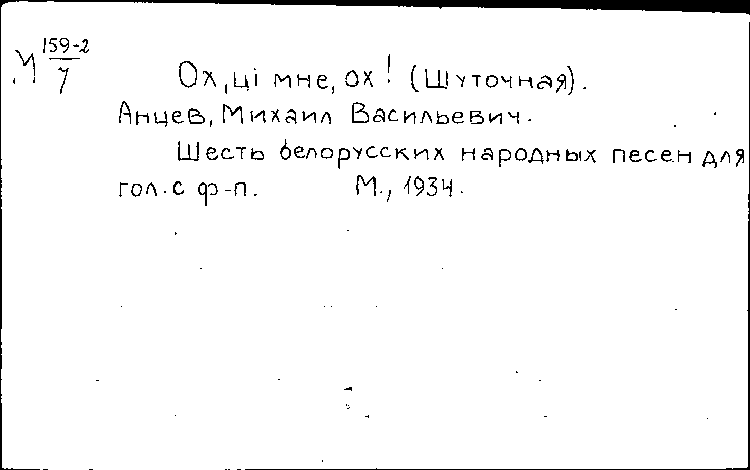 М 159-2/7
Ох, ці мне, ох! (Шуточная).
Анцев, Михаил Васильевич.
Шесть белорусских народных песен для
гол. с ф-п. М., 1934.